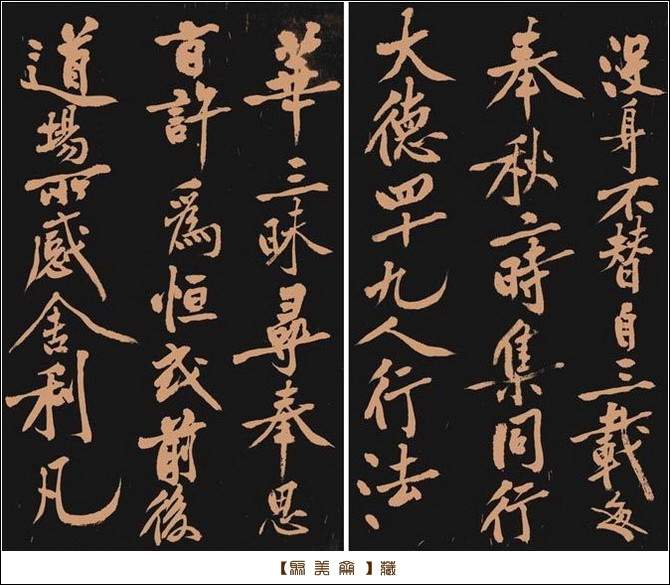 沒身不替自三載每
奉秋二時集同行
大德四十九人行法
華三昧尋奉思
百許爲恒式前後
道場所感舍利凡
【美齋】藏